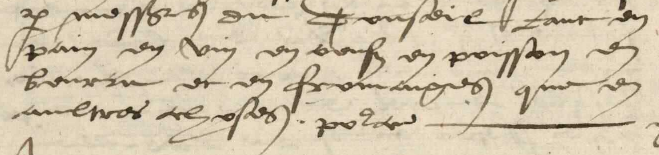 p messgrs du Conseil tant en
pain en vin en oeufz en poisson en
beurre et en fromaiges que en
aultres choses. po ce